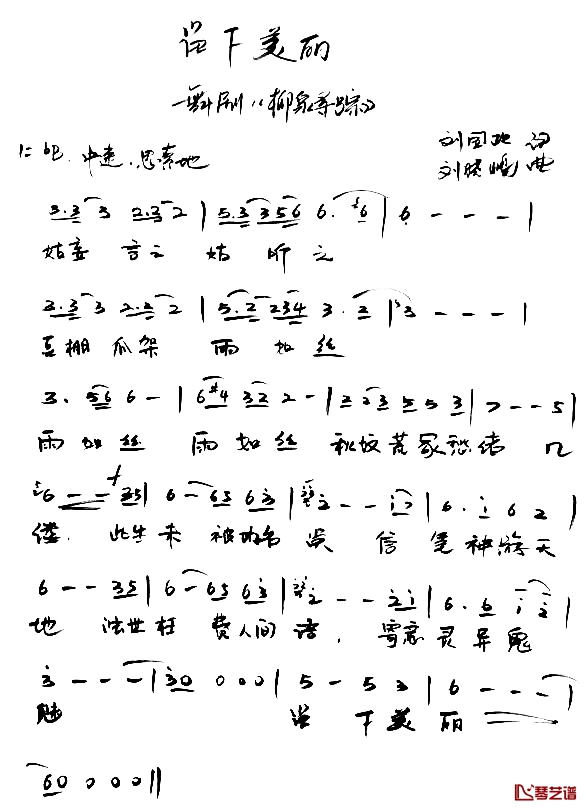 留下美丽
舞剧《柳泉寻踪》
1=bE 中速、思索地
刘国
词
刘晓
曲
3.3 3 2.3 2 | 5.3 3 5 6 6. 6 | 6 - - - |
姑妄言之 姑听之
3.3 3 2.2 2 | 5.2 2 3 4 3. 2 | 3 - - - |
豆棚瓜架 雨如丝
3. 56 6 - | 6#4 32 2 - | 2 2 3 5 5 3 | 7 - - 5 |
雨如丝 雨如丝 秋坟荒冢愁绪几
6 - - 35 | 6 - 65 63 | 2 - - 17 | 6. 1 6 2 |
缕 此生未被功名误 信笔神游天
6 - - 35 | 6 - 65 63 | 2 - - 21 | 6. 6 1 2 |
地 浊世枉费人间 寄意灵异鬼
3 - - - | 30 0 0 0 | 5 - 5 3 | 6 - - - |
魅 留下美丽
60 0 0 0 ||
琴艺谱